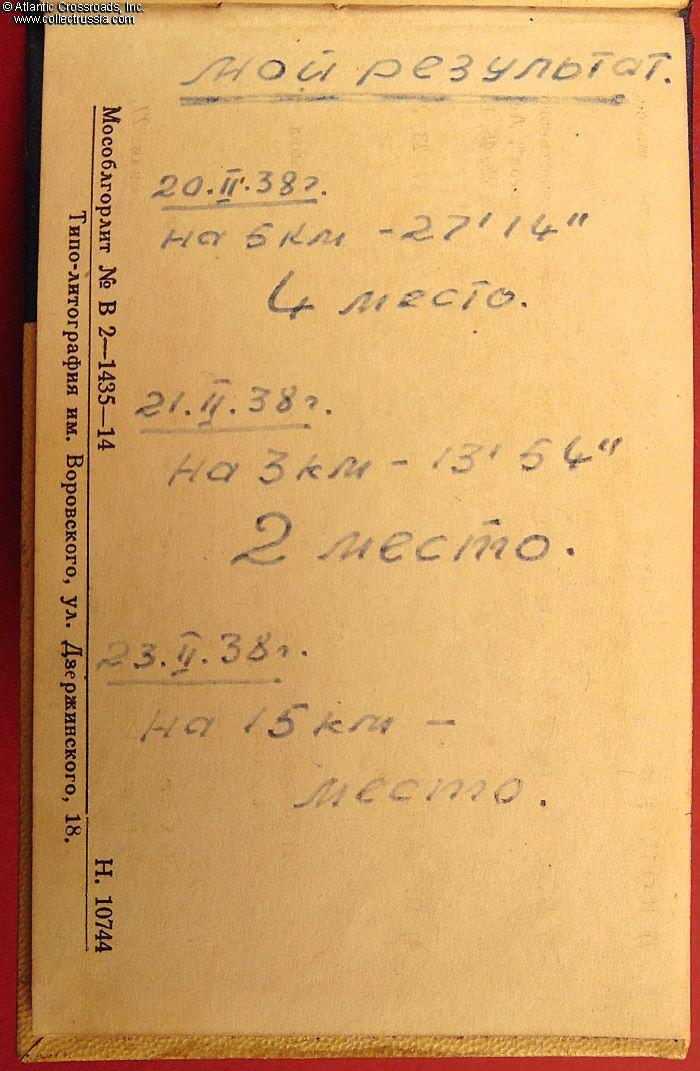 © Atlantic Crossroads, Inc.
www.collectrussia.com
мой результат.
20.II.38г.
на 5км - 27' 14"
4 место.
21.II.38г.
на 3км - 13' 54"
2 место.
23.II.38г.
на 15км -
место.
Мособлгорлит № В 2—1435—14
Н. 10744
Типо-литография им. Воровского, ул. Дзержинского, 18.